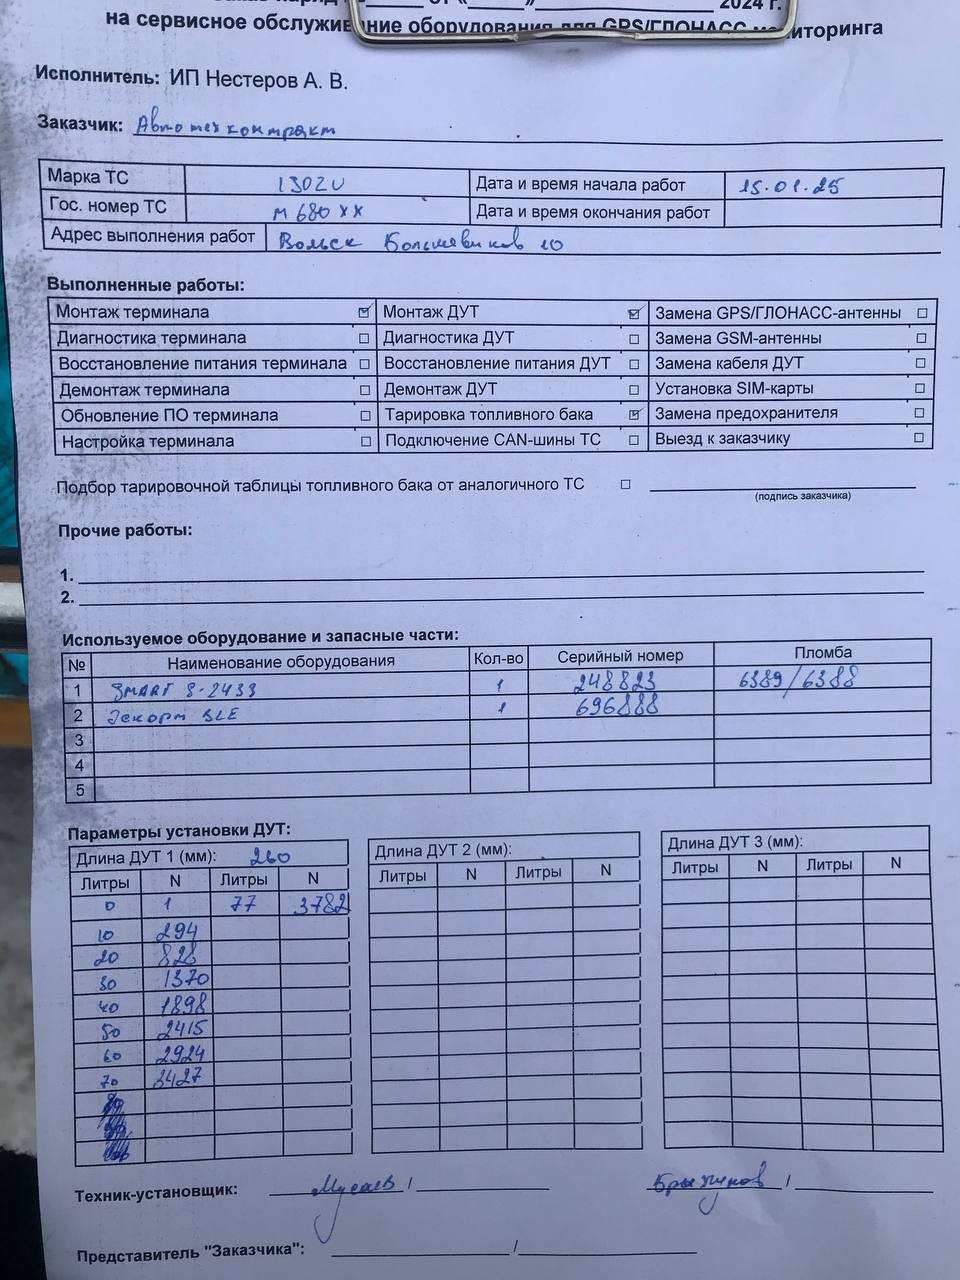 от « » 2024 г.
на сервисное обслуживание оборудования для GPS/ГЛОНАСС мониторинга
Исполнитель: ИП Нестеров А. В.
Заказчик: Автотехконтракт
Марка ТС 1302U Дата и время начала работ 15.01.25
Гос. номер ТС м 680 хх Дата и время окончания работ
Адрес выполнения работ Вольск Большевиков 10
Выполненные работы:
Монтаж терминала ☑ Монтаж ДУТ ☑ Замена GPS/ГЛОНАСС-антенны ☐
Диагностика терминала ☐ Диагностика ДУТ ☐ Замена GSM-антенны ☐
Восстановление питания терминала ☐ Восстановление питания ДУТ ☐ Замена кабеля ДУТ ☐
Демонтаж терминала ☐ Демонтаж ДУТ ☐ Установка SIM-карты ☐
Обновление ПО терминала ☐ Тарировка топливного бака ☑ Замена предохранителя ☐
Настройка терминала ☐ Подключение CAN-шины ТС ☐ Выезд к заказчику ☐
Подбор тарировочной таблицы топливного бака от аналогичного ТС ☐
(подпись заказчика)
Прочие работы:
1.
2.
Используемое оборудование и запасные части:
№ Наименование оборудования Кол-во Серийный номер Пломба
1 SMART S-2433 1 248823 6389/6388
2 Эскорт BLE 1 696888
3
4
5
Параметры установки ДУТ:
Длина ДУТ 1 (мм): 260 Длина ДУТ 2 (мм): Длина ДУТ 3 (мм):
Литры N Литры N Литры N Литры N Литры N Литры N
0 1 77 3782
10 294
20 828
30 1370
40 1898
50 2415
60 2924
70 3427
Техник-установщик: Мусаев / Брызгунов /
Представитель "Заказчика": /